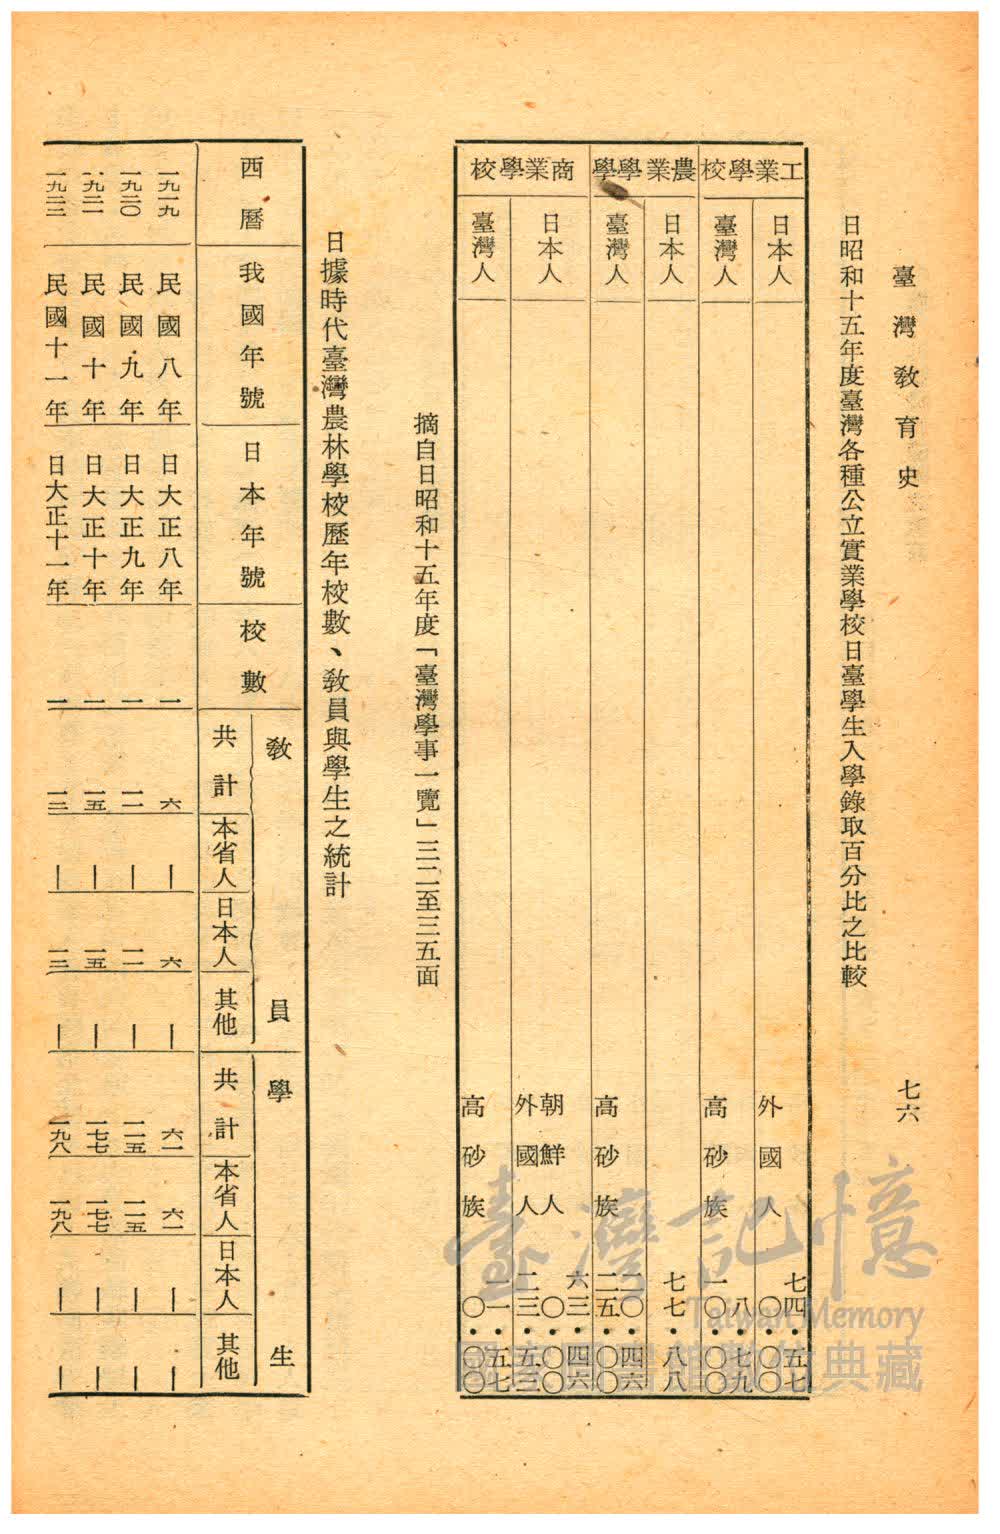 臺灣教育史
七六
日昭和十五年度臺灣各種公立實業學校日臺學生入學錄取百分比之比較
工業學校
日本人 七四・五七
外國人 〇・〇〇
臺灣人 八・七九
高砂族 一〇・〇〇
農業學學
日本人 七七・八八
臺灣人 二〇・四六
高砂族 二五・〇〇
商業學校
日本人 六三・四六
朝鮮人 〇・〇〇
外國人 二三・五三
臺灣人 一一・五七
高砂族 〇・〇〇
摘自日昭和十五年度「臺灣學事一覽」三二至三五面
日據時代臺灣農林學校歷年校數、教員與學生之統計
教員 學生
西曆 我國年號 日本年號 校數 共計 本省人 日本人 其他 共計 本省人 日本人 其他
一九一九 民國八年 日大正八年 一 六 — 六 — 六一 六一 — —
一九二〇 民國九年 日大正九年 一 一一 — 一一 — 一一五 一一五 — —
一九二一 民國十年 日大正十年 一 一五 — 一五 — 一七七 一七七 — —
一九二二 民國十一年 日大正十一年 一 一三 — 一三 — 一九八 一九八 — —
臺灣記憶
Taiwan Memory
國家圖書館數位典藏